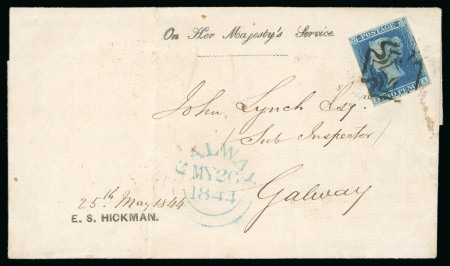 On Her Majesty's Service.
POSTAGE
TWO PENCE
John Lynch Esq.
(Sub Inspector)
GALWAY
MY 26
1844
Galway
25th May 1844
E. S. HICKMAN.